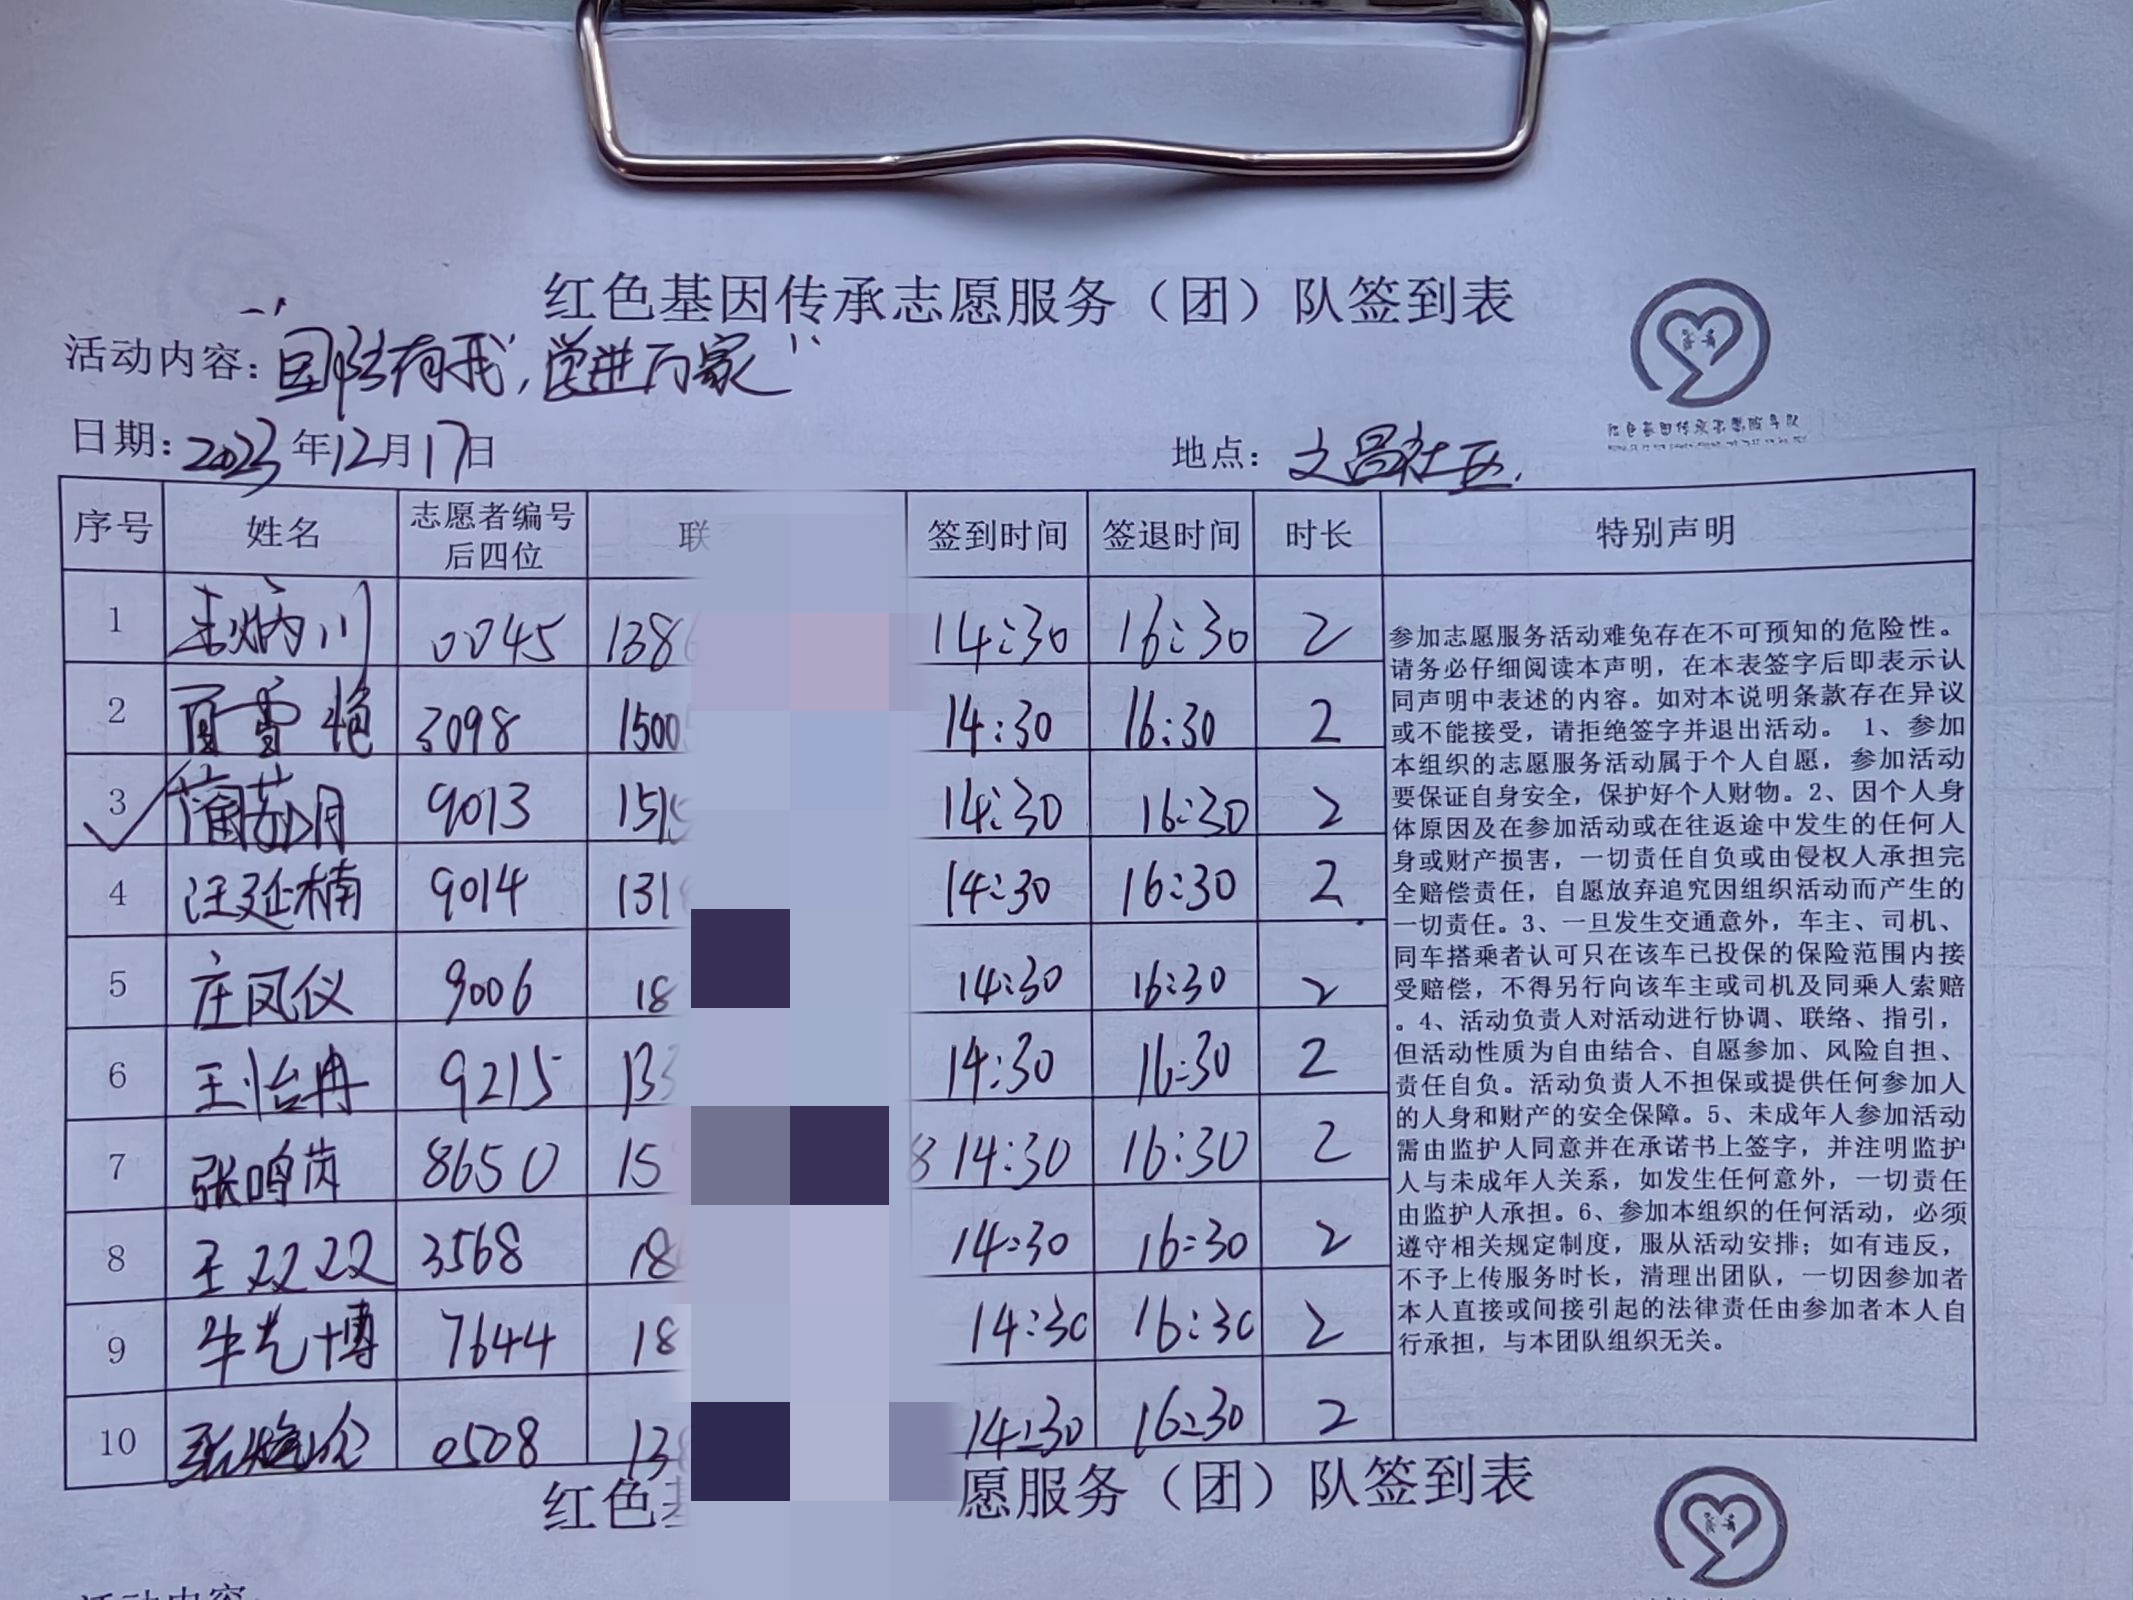 红色基因传承志愿服务（团）队签到表
活动内容：“国防有我，党进万家”
日期：2023年12月17日 地点：文昌社区
序号 姓名 志愿者编号后四位 联 签到时间 签退时间 时长 特别声明
1 0045 138 14:30 16:30 2
2 夏雪艳 3098 1500 14:30 16:30 2
3 9013 151 14:30 16:30 2
4 汪延楠 9014 131 14:30 16:30 2
5 庄凤仪 9006 18 14:30 16:30 2
6 王怡冉 9215 133 14:30 16:30 2
7 张鸣芮 8650 15 8 14:30 16:30 2
8 王双双 3568 18 14:30 16:30 2
9 牛艺博 7644 18 14:30 16:30 2
10 0508 13 14:30 16:30 2
参加志愿服务活动难免存在不可预知的危险性。
请务必仔细阅读本声明，在本表签字后即表示认
同声明中表述的内容。如对本说明条款存在异议
或不能接受，请拒绝签字并退出活动。 1、参加
本组织的志愿服务活动属于个人自愿，参加活动
要保证自身安全，保护好个人财物。2、因个人身
体原因及在参加活动或在往返途中发生的任何人
身或财产损害，一切责任自负或由侵权人承担完
全赔偿责任，自愿放弃追究因组织活动而产生的
一切责任。3、一旦发生交通意外，车主、司机、
同车搭乘者认可只在该车已投保的保险范围内接
受赔偿，不得另行向该车主或司机及同乘人索赔
。4、活动负责人对活动进行协调、联络、指引，
但活动性质为自由结合、自愿参加、风险自担、
责任自负。活动负责人不担保或提供任何参加人
的人身和财产的安全保障。5、未成年人参加活动
需由监护人同意并在承诺书上签字，并注明监护
人与未成年人关系，如发生任何意外，一切责任
由监护人承担。6、参加本组织的任何活动，必须
遵守相关规定制度，服从活动安排；如有违反，
不予上传服务时长，清理出团队，一切因参加者
本人直接或间接引起的法律责任由参加者本人自
行承担，与本团队组织无关。
红色 愿服务（团）队签到表
活动内容：